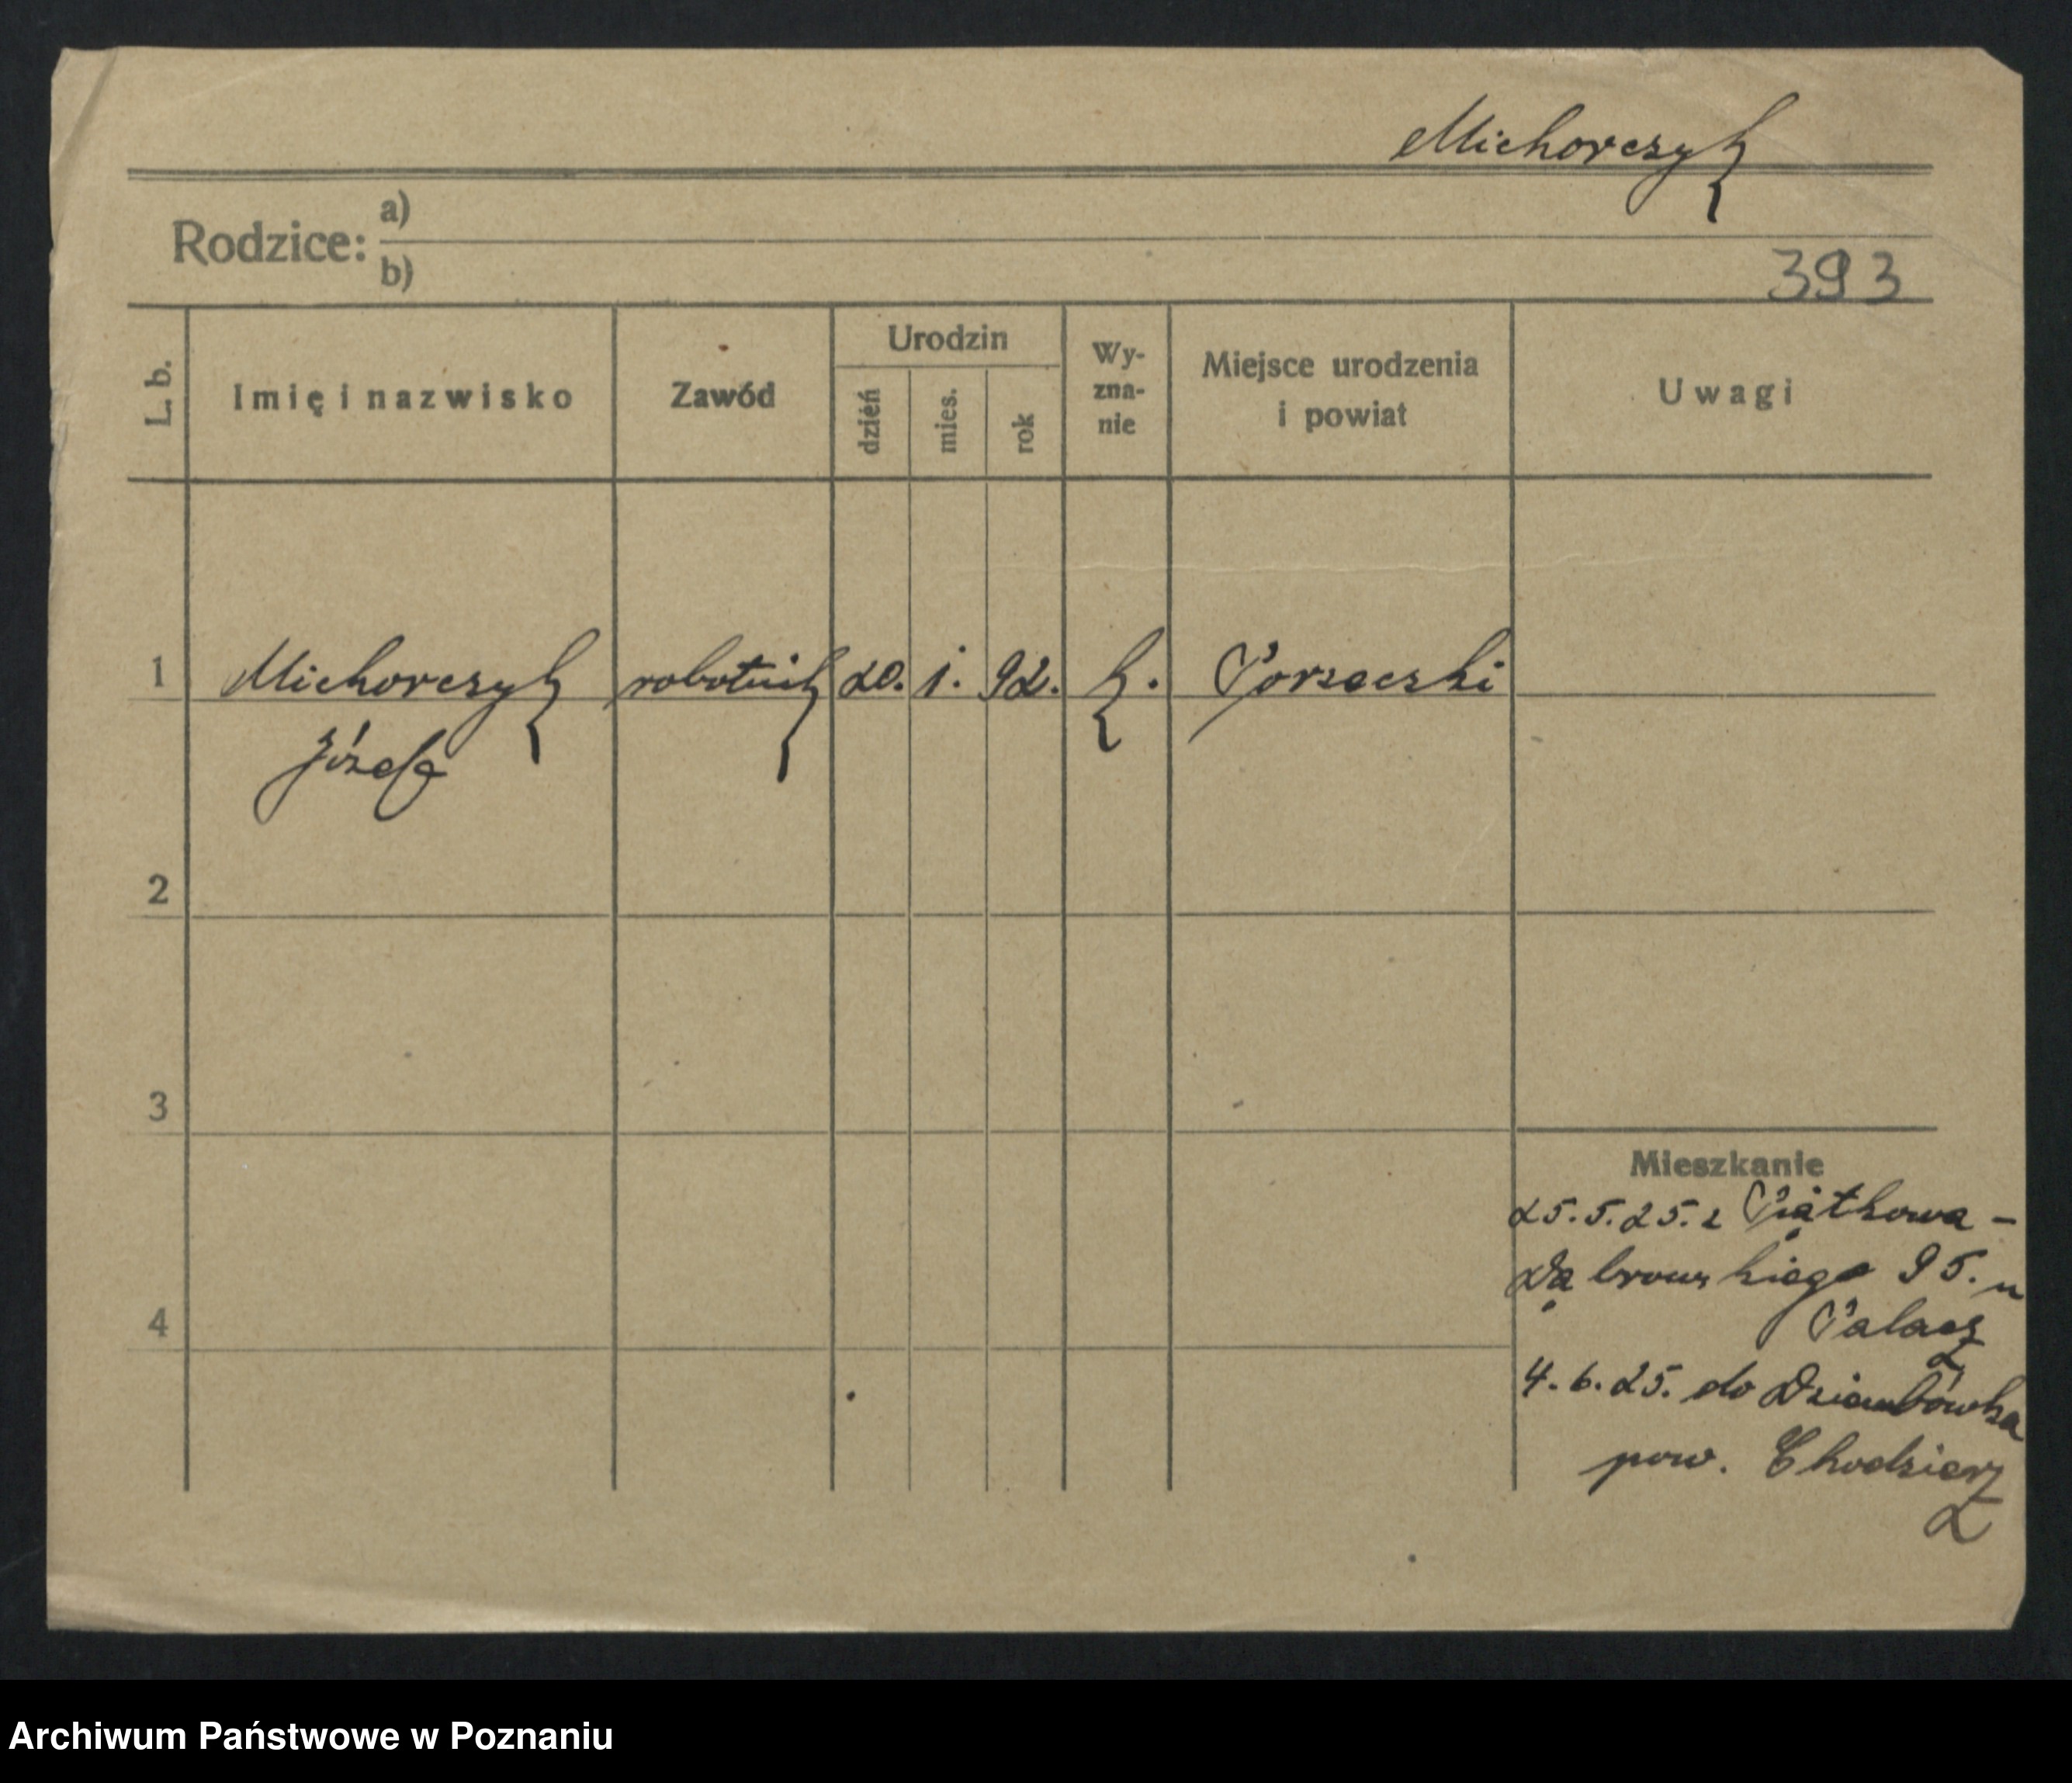 Michorczyk
Rodzice: a)
b)
393
L. b.
Imię i nazwisko
Zawód
Urodzin
dzień
mies.
rok
Wy-
zna-
nie
Miejsce urodzenia
i powiat
Uwagi
1 Michorczyk robotnik 20. 1. 92. k.
Józefa
2
3
4
Mieszkanie
25.5.25. z Piątkowa -
Dąbrowskiego 95. u
Palacz
4.6.25. do Dziembówka
pow. Chodzież
Archiwum Państwowe w Poznaniu